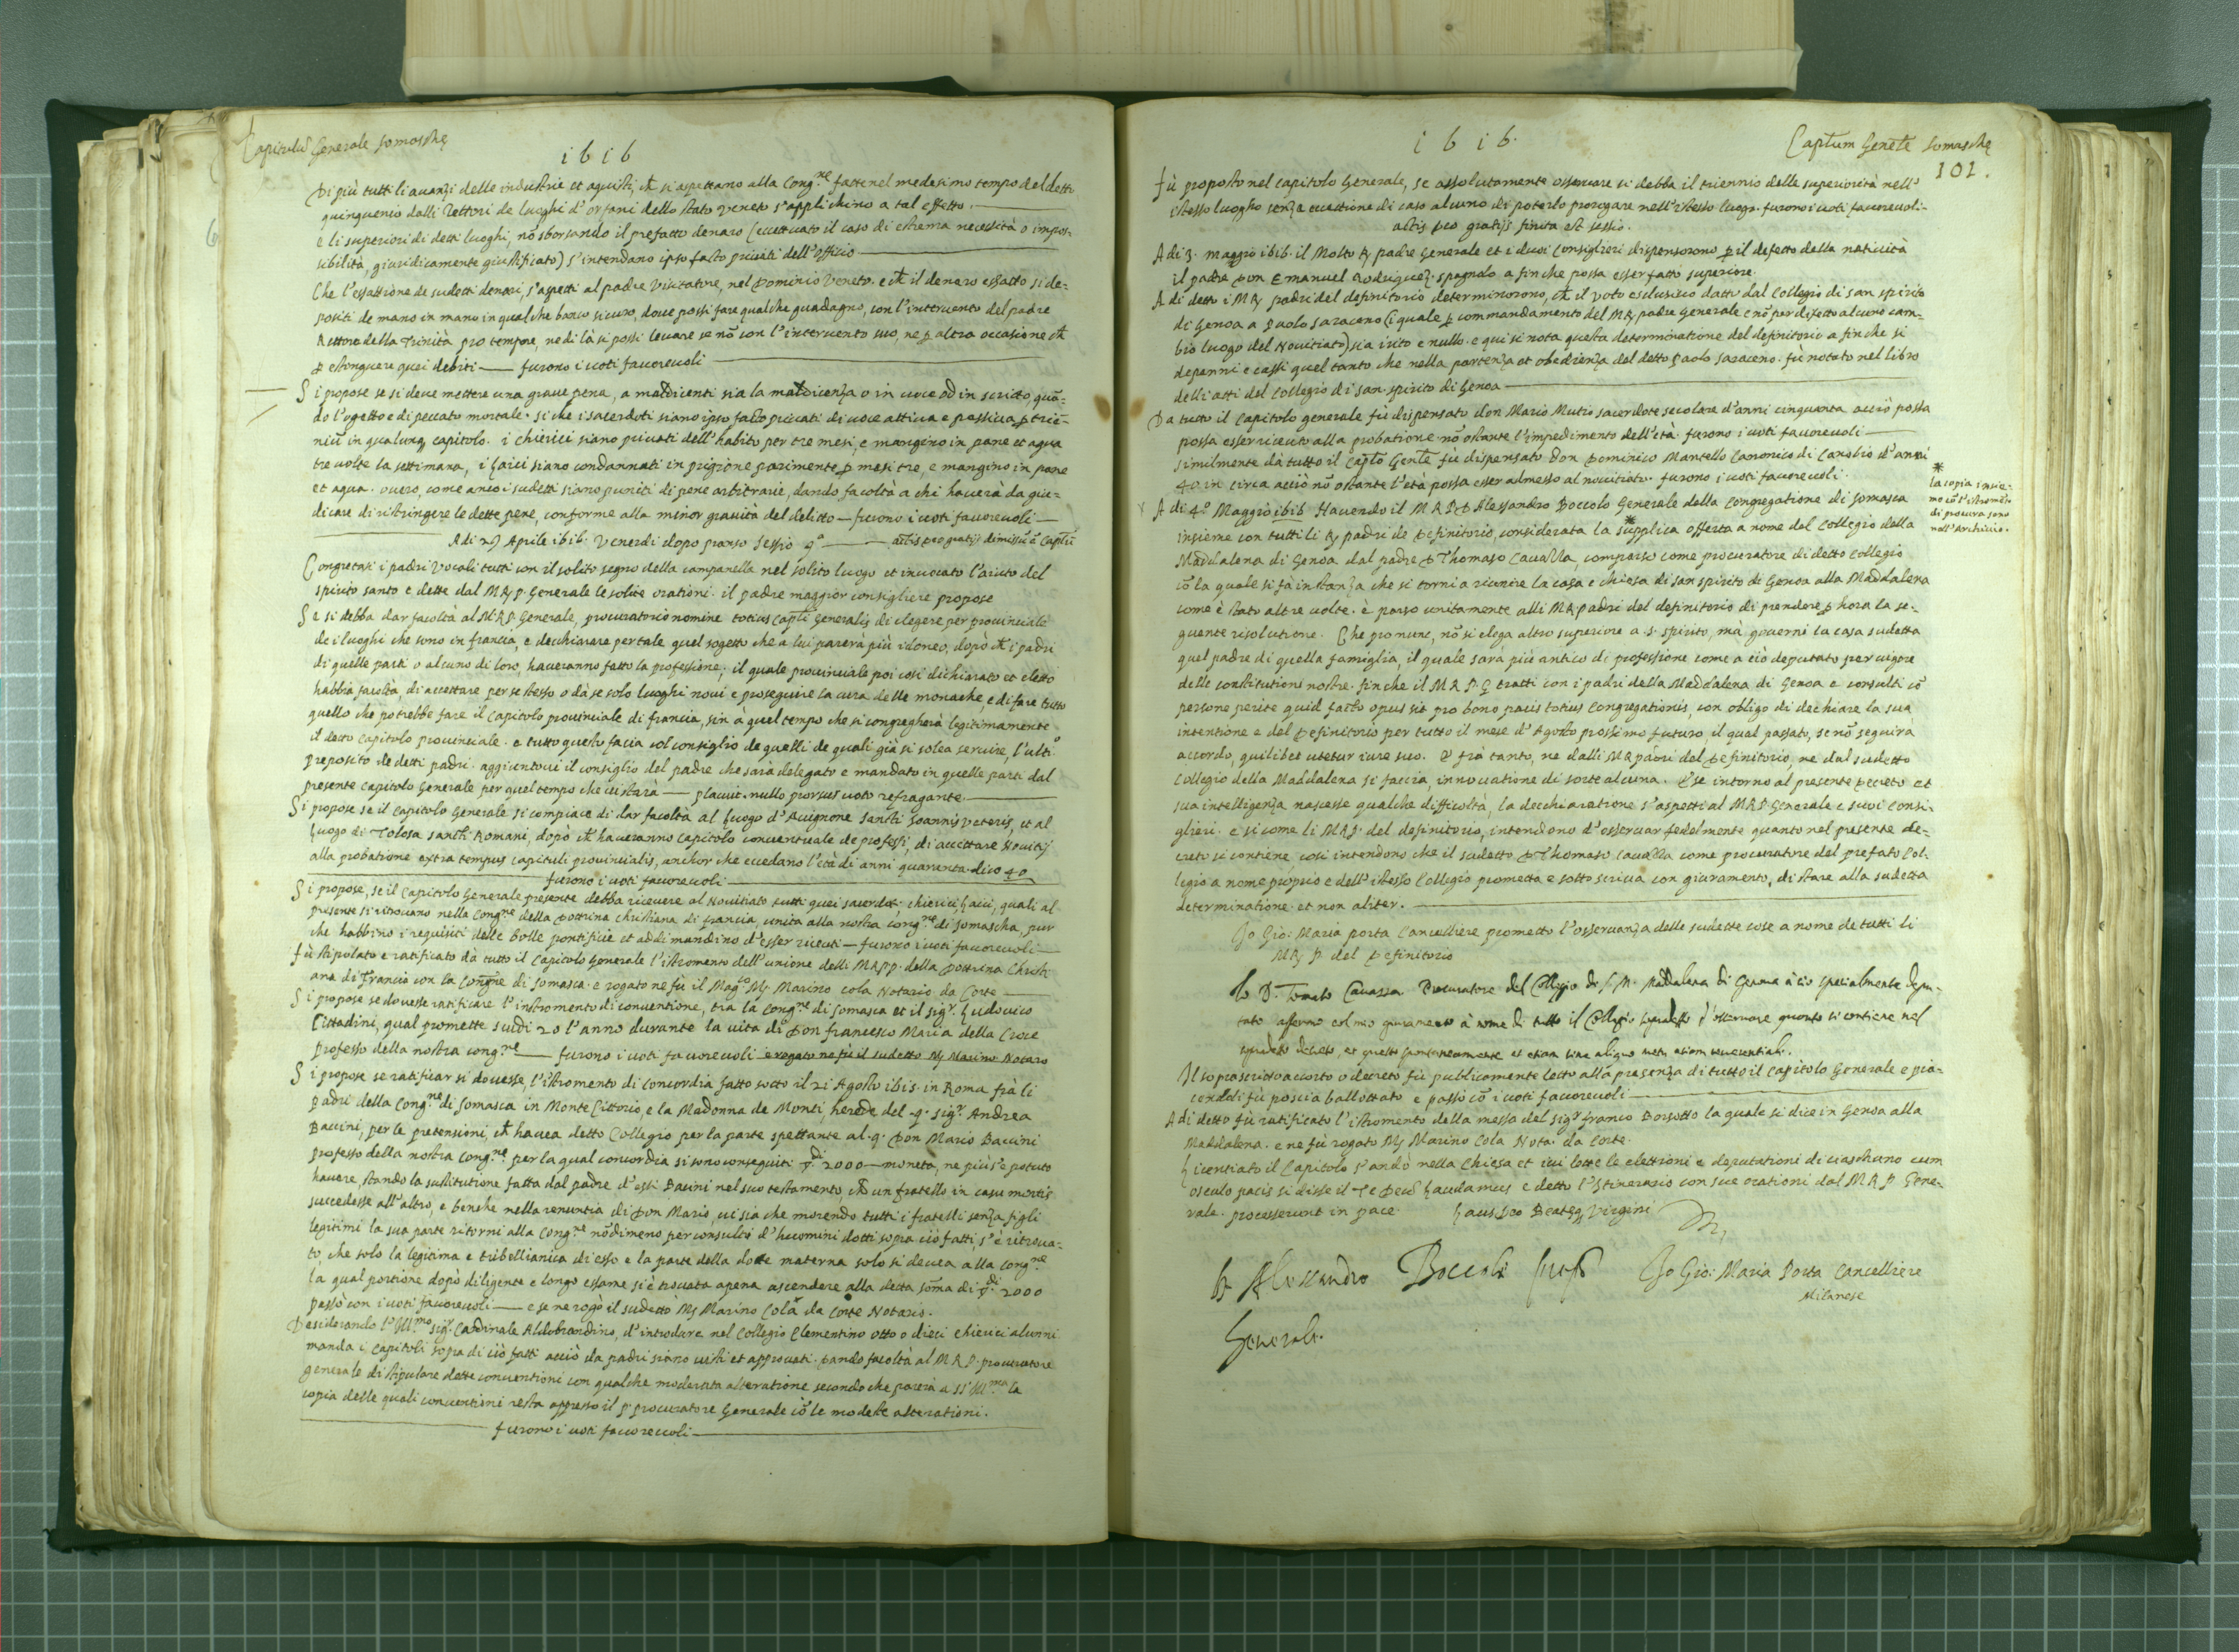 Capitulũ Generale Somaschę
1616
Di più tutti li avanzi delle industrie et aquisti, ch̃ si aspettano alla Cong.ne fatte nel medesimo tempo del detto
quinquenio dalli Rettori de luoghi d'orfani dello stato Veneto s'applichino a tal effetto.
e li superiori di detti luoghi, nõ sborsando il prefatto denaro (eccettuato il caso di estrema necessità o impos-
sibilità, giuridicamente giustificato) s'intendano ipso facto privati dell'officio
Che l'essattione de sudetti denari, s'aspetti al padre Visitatore, nel Dominio Veneto. e ch̃ il denaro essatto si de-
positi de mano in mano in qualche banco sicuro, dove possi fare qualche guadagno, con l'intervento del padre
Rettore della Trinità pro tempore, ne di là si possi levare se nõ con l'intervento suo, ne p altra occasione ch̃
p estinguere quei debiti — furono i voti favorevoli
Si propose se si deve mettere una grave pena, a maldicenti sia la maldicenza o in voce od in scritto quã-
do l'ogetto e di peccato mortale. si che i sacerdoti siano ipso facto privati di voce attiva e passiva p trie-
niũ in qualunq capitolo. i chierici siano privati dell'habito per tre mesi, e mangino in pane et aqua
tre volte la settimana, i laici siano condannati in prigione parimente p mesi tre, e mangino in pane
et aqua. overo, come anco i sudetti siano puniti di pene arbitrarie, dando facoltà a chi haverà da giu-
dicare di ristringere le dette pene, conforme alla minor gravità del delitto — furono i voti favorevoli —
A di 29 Aprile 1616. Venerdi dopo pranso Sessio 9a — actis Deo gratijs dimissũ ẽ Captũ
Congregati i padri Vocali tutti con il solito segno della campanella nel solito luogo et invocato l'aiuto del
spirito santo e dette dal M R p. Generale le solite orationi. il padre maggior consigliere propose
Se si debba dar facoltà al M R P Generale, procuratorio nomine totius Captli Generalis di elegere per provinciale
de i luoghi che sono in francia, e decchiarare per tale quel sogetto che a lui parerà più idoneo, dopò ch̃ i padri
di quelle parti o alcuno di loro, haveranno fatto la professione; il quale provinciale poi cosi dichiarato et eletto
habbia facoltà, di accettare per se stesso o dà se solo luoghi novi e proseguire la cura delle monache, e di fare tutto
quello che potrebbe fare il Capitolo provinciale di francia, sin à quel tempo che si congregherà legitimamente
il detto Capitolo provinciale. e tutto questo facia col consiglio de quelli de quali già si solea servire, l'ulto
preposito de detti padri. aggiontovi il consiglio del padre che sarà delegato e mandato in quelle parti dal
presente Capitolo Generale per quel tempo che ivi starà — placuit. nullo prorsus voto refragante.
Si propose se il Capitolo Generale si compiace di dar facoltà al Luogo d'Avignone Sancti Joannis veteris, et al
Luogo di Tolosa sancti Romani, dopò ch̃ haveranno Capitolo conventuale de professi, di accettare Novitij
alla probatione extra tempus capituli provincialis, anchor che eccedano l'età di anni quarenta dico 40
furono i voti favorevoli
Si propose, se il Capitolo Generale presente debba ricevere al Novitiato tutti quei sacerdoti chierici laici, quali al
presente si ritrovano nella Cong.ne della Dottrina Christiana di francia, unita alla nostra cong.ne di Somascha, pur
che habbino i requisiti delle bolle pontificie et addimandino d'esser ricevuti — furono i voti favorevoli —
fù stipolato e ratificato dà tutto il Capitolo Generale l'istromento dell'unione delli M R P P. della Dottrina Christi
ana di Francia con la Congne di Somasca. e rogato ne fù il Mag.co Mr Marino Cola Notario da Corte
Si propose se dovesse ratificare l'instromento di conventione, tra la Cong.ne di Somasca et il sigr. Ludovico
Cittadini, qual promette scudi 20 l'anno durante la vita di Don francesco Maria della Croce
professo della nostra cong.ne — furono i voti favorevoli e rogato ne fù il sudetto Mr Marino Notaro
Si propose se ratificar si dovesse, l'istromento di Concordia fatto sotto il 21 Agosto 1615. in Roma frà li
Padri della Cong.ne di Somasca in Monte Cittorio, e la Madonna de Monti, herede del .q. sigr Andrea
Baccini, per le pretensioni, ch̃ havea detto Collegio per la parte spettante al .q. Don Mario Baccini
professo della nostra Cong.ne per la qual concordia si sono conseguiti 2000 — moneta, ne più s'è potuto
havere, stando la sustitutione fatta dal padre d'essi Bacini nel suo testamento, ch̃ un fratello in casu mortis
succedesse all'altro, e benche nella renuntia di Don Mario, vi sia che morendo tutti i fratelli senza figli
legitimi la sua parte ritorni alla Cong.ne nõdimeno per consulto d'huomini dotti sopra ciò fatti, s'è ritrova-
to, che solo la legitima e tribellianica di esso e la parte della dote materna solo si devea alla Cong.ne
la qual portione dopò diligente e longo essame si è trovata apena ascendere alla detta sõma di 2000
passò con i voti favorevoli — e se ne rogò il sudetto Mr Marino Cola da Corte Notario.
Desiderando l'Ill.mo sigr. Cardinale Aldobrandino, d'introdure nel Collegio Clementino otto o dieci chierici alunni
manda i Capitoli sopra di ciò fatti acciò da padri siano visti et approvati. Dando facoltà al M R P. procuratore
generale di stipulare dette conventioni con qualche moderata alteratione secondo che parerà a SS Ill.ma la
copia delle quali conventioni resta appresso il P procuratore Generale cõ le modeste alterationi.
furono i voti favorevoli
1616.
Captum Genele Somaschę
101.
fù proposto nel capitolo Generale, se assolutamente osservare si debba il triennio delle superiorità nell'
istesso luogho senza eccettione di caso alcuno di poterlo prorogare nell'istesso luogo. furono i voti favorevoli-
actis Deo gratijs finita est sessio.
A di 3. maggio 1616. il Molto R padre Generale et i duoi Consiglieri dispensorono p il defetto della natività
il padre Don Emanuel Rodriguez. spagnolo a fin che possa esser fatto superiore.
A di detto i M R padri del definitorio determinorono, ch̃ il voto esclusivo datto dal Collegio di san spirito
di Genoa a Paolo saraceno (il quale p commandamento del M R padre Generale e nõ per difetto alcuno cam-
bio luogo del Novitiato) sia irito e nullo. e qui si nota questa determinatione del definitorio a fin che si
depenni e cassi quel tanto che nella partenza et obedienza del detto Paolo saraceno. fù notato nel libro
delli atti del Collegio di san. spirito di Genoa
Da tutto il Capitolo generale fù dispensato don Mario Mutio sacerdote secolare d'anni cinquanta acciò possa
possa esser ricevuto alla probatione nõ ostante l'impedimento dell'età. furono i voti favorevoli
similmente dà tutto il Capto Genle fù dispensato don Dominico Mantello Canonico di Canobio d'anni
40 in circa acciò nõ ostante l'età possa esser admesso al novitiato. furono i voti favorevoli.
A di 4o Maggio 1616 Havendo il M R P D Alessandro Boccolo Generale della Congregatione di Somasca
insieme con tutti li R padri de Definitorio, considerata la supplica offerta a nome del Collegio della
* la copia insie-
mo cõ l'istromẽto
di procura sono
nell'Archivio.
Maddalena di Genoa dal padre D Thomaso Cavazza, comparso come procuratore di detto Collegio
cõ la quale si fà instanza che si torni a riunire la casa e chiesa di san spirito di Genoa alla Maddalena
come è stato altre volte. è parso unitamente alli M R padri del definitorio di prendere p hora la se-
guente risolutione. Che pro nunc, nõ si elega altro superiore a s. spirito, mà governi la casa sudetta
quel padre di quella famiglia, il quale sarà più antico di professione come a ciò deputato per vigore
delle constitutioni nostre. fin che il M R P G tratti con i padri della Maddalena di Genoa e consulti cõ
persone perite quid facto opus sit pro bono pacis totius Congregationis, con obligo di dechiare la sua
intentione e del Definitorio per tutto il mese d'Agosto prossimo futuro, il qual passato, se nõ seguirà
accordo, quilibet utetur iure suo. E frà tanto, ne dalli M R padri del Definitorio, ne dal sudetto
Collegio della Maddalena si faccia, innovatione di sorte alcuna. E se intorno al presente Decreto et
sua intelligenza nascesse qualche difficoltà, la decchiaratione s'aspetti al M R P Generale e suoi Consi-
glieri. e si come li M R P. del definitorio, intendono d'osservar fedelmente quanto nel presente de-
creto si contiene cosi intendono che il sudetto D Thomaso Cavazza come procuratore del prefato Col-
legio a nome proprio e dell'istesso Collegio prometta e sotto scriva con giuramento, di stare alla sudetta
determinatione. et non aliter.
Io Gio: Maria porta Cancelliere prometto l'osservanza delle sudette cose a nome de tutti li
M R P. del Definitorio
Io D. Tomaso Cavazza Procuratore del Collegio de S. M. Maddalena di Genova à ciò specialmente depu-
tato affermo col mio giuramento à nome di tutto il Collegio sopradetto d'osservare quanto si contiene nel
sopradetto decreto, et questo spontaneamente et etiam sine aliquo metu etiam reverentiali.
Il sopra scritto accorto o decreto fù publicamente letto alla presenza di tutto il Capitolo Generale e pia-
cendoli fù poscia ballottato e passò cõ i voti favorevoli
A di detto fù ratificato l'istromento della messa del sigr franco Borsotto la quale si dice in Genoa alla
Maddalena. e ne fù rogato Mr Marino Cola Nota. da Corte.
Licentiato il Capitolo s'andò nella Chiesa et ivi lette le elettioni e deputationi di ciaschuno cum
osculo pacis si disse il Te Deũ Laudamus e detto l'Itinerario con sue orationi dal M R P Gene-
rale. processerunt in pace. Laus Deo Beatęq Virgini
Alessandro Boccoli
Generale.
Io Gio: Maria Porta Cancelliere
Milanese